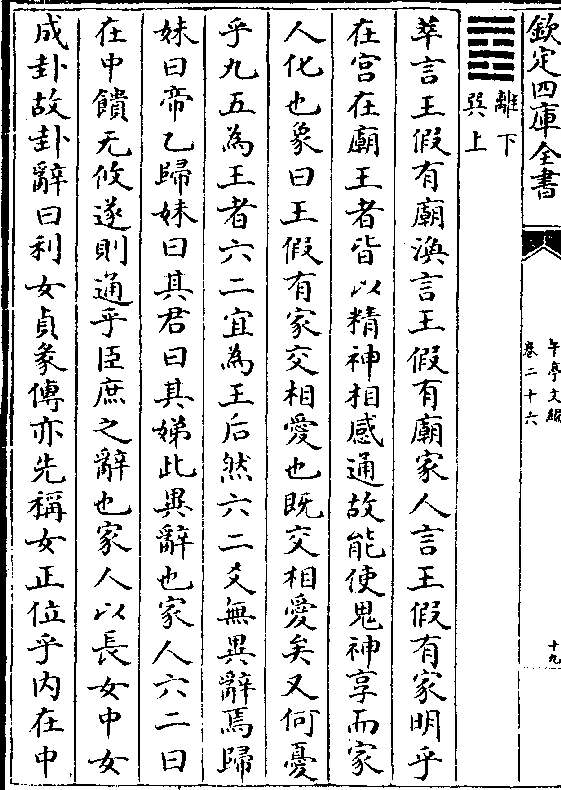 欽定四庫全書
午亭文編
卷二十六
十九
離下
巽上
萃言王假有廟渙言王假有廟家人言王假有家明乎
在宫在廟王者皆以精神相感通故能使鬼神享而家
人化也象曰王假有家交相愛也既交相愛矣又何憂
乎九五為王者六二宜為王后然六二爻無異辭焉歸
妹曰帝乙歸妹曰其君曰其娣此異辭也家人六二曰
在中饋无攸遂則通乎臣庶之辭也家人以長女中女
成卦故卦辭曰利女貞彖傳亦先稱女正位乎内在中